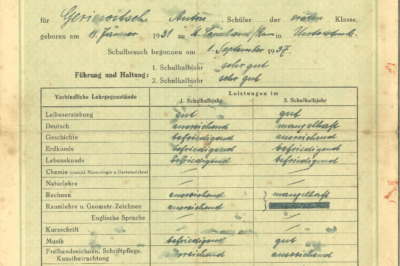 für Geriewitsch Anton, Schüler der ersten Klasse,
geboren am 11. Jänner 1931 in St. Leonhard/ in
Schulbesuch begonnen am 1. September 1937
Führung und Haltung: 1. Schulhalbjahr sehr gut
2. Schulhalbjahr sehr gut
Verbindliche Lehrgegenstände Leistungen im
1. Schulhalbjahr 2. Schulhalbjahr
Leibeserziehung gut gut
Deutsch ausreichend mangelhaft
Geschichte befriedigend ausreichend
Erdkunde befriedigend befriedigend
Lebenskunde befriedigend befriedigend
Chemie (einschl. Mineralogie u. Gesteinslehre)
Naturlehre
Rechnen ausreichend mangelhaft
Raumlehre u. Geometr. Zeichnen ausreichend
Englische Sprache
Kurzschrift
Musik befriedigend gut
Freihandzeichnen, Schriftpflege, Kunstbetrachtung ausreichend ausreichend